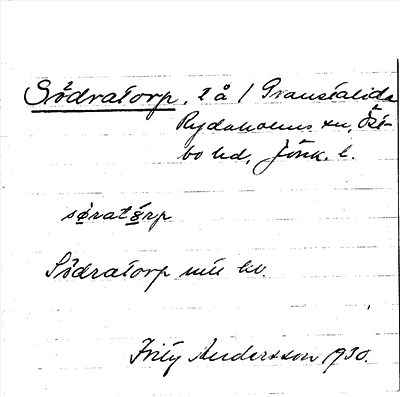 Södratorp, t å / Transtalida
Rydaholms sn, Öst-
bo hd, Jönk. l.
søratørp
Södratorp
Fritz Andersson 1930.